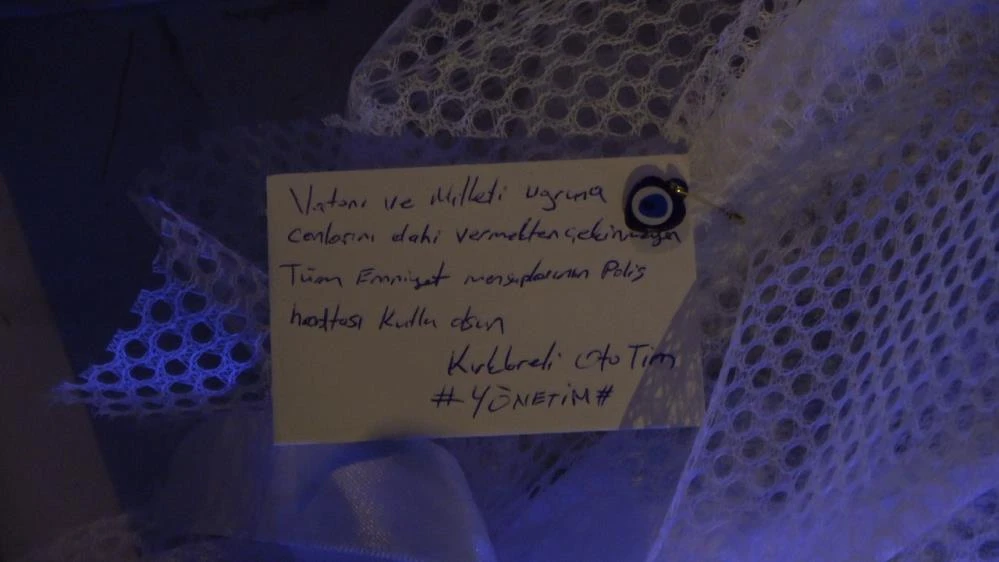 Vatanı ve Milleti uğruna
canlarını dahi vermekten çekinmeyen
Tüm Emniyet mensuplarının Polis
haftası Kutlu olsun
Kırklareli Oto Tim
#YÖNETİM#